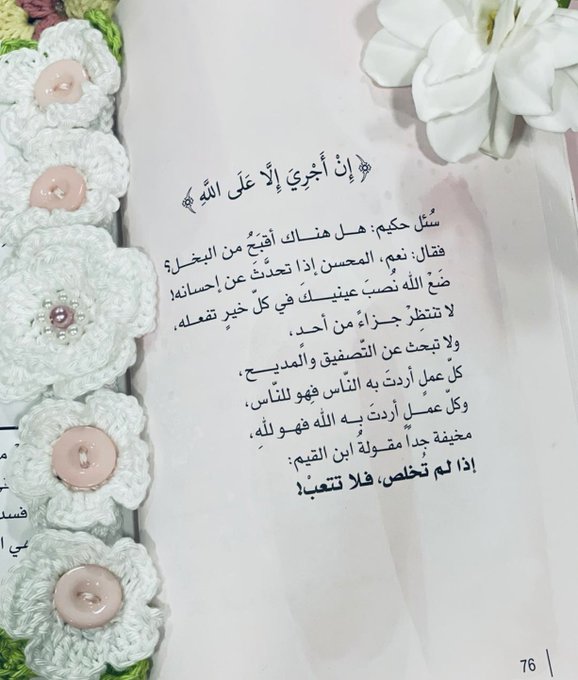 ﴿إِنْ أَجْرِيَ إِلَّا عَلَى اللَّهِ﴾
سُئل حكيم: هل هناك أقبَحُ من البخل؟
فقال: نعم، المحسن إذا تحدَّثَ عن إحسانه!
ضَعْ الله نُصبَ عينيكَ في كلّ خيرٍ تفعله،
لا تنتظِرْ جزاءً من أحدٍ،
ولا تبحث عن التّصفيق والمديح،
كلّ عملٍ أردتَ به النّاس فهو للنّاس،
وكلّ عملٍ أردتَ به الله فهو للهِ،
مخيفة جداً مقولةُ ابن القيم:
إذا لم تُخلص، فلا تتعبْ!
76